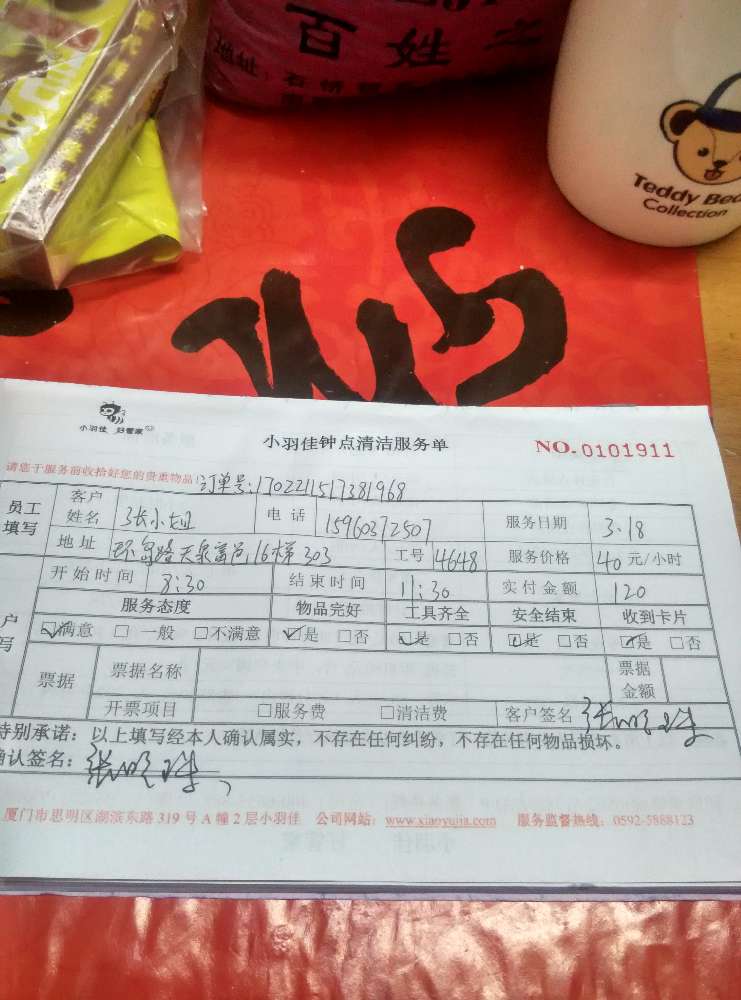 百姓之
地址:石
Teddy Bea
Collection
小羽佳 好管家
小羽佳钟点清洁服务单
NO.0101911
请您于服务前收拾好您的贵重物品
订单号:1702211517381968
员工填写 客户姓名 张小姐 电话 15960372507 服务日期 3.18
地址 环岛路天泉富邑,16梯303 工号 4648 服务价格 40元/小时
开始时间 8:30 结束时间 11:30 实付金额 120
户写 服务态度 物品完好 工具齐全 安全结束 收到卡片
☑满意 □一般 □不满意 ☑是 □否 ☑是 □否 ☑是 □否 ☑是 □否
票据 票据名称 票据金额
开票项目 □服务费 □清洁费 客户签名 张明珠
特别承诺:以上填写经本人确认属实,不存在任何纠纷,不存在任何物品损坏。
确认签名:张明珠
厦门市思明区湖滨东路319号A幢2层小羽佳 公司网站:www.xiaoyujia.com 服务监督热线:0592-5888123